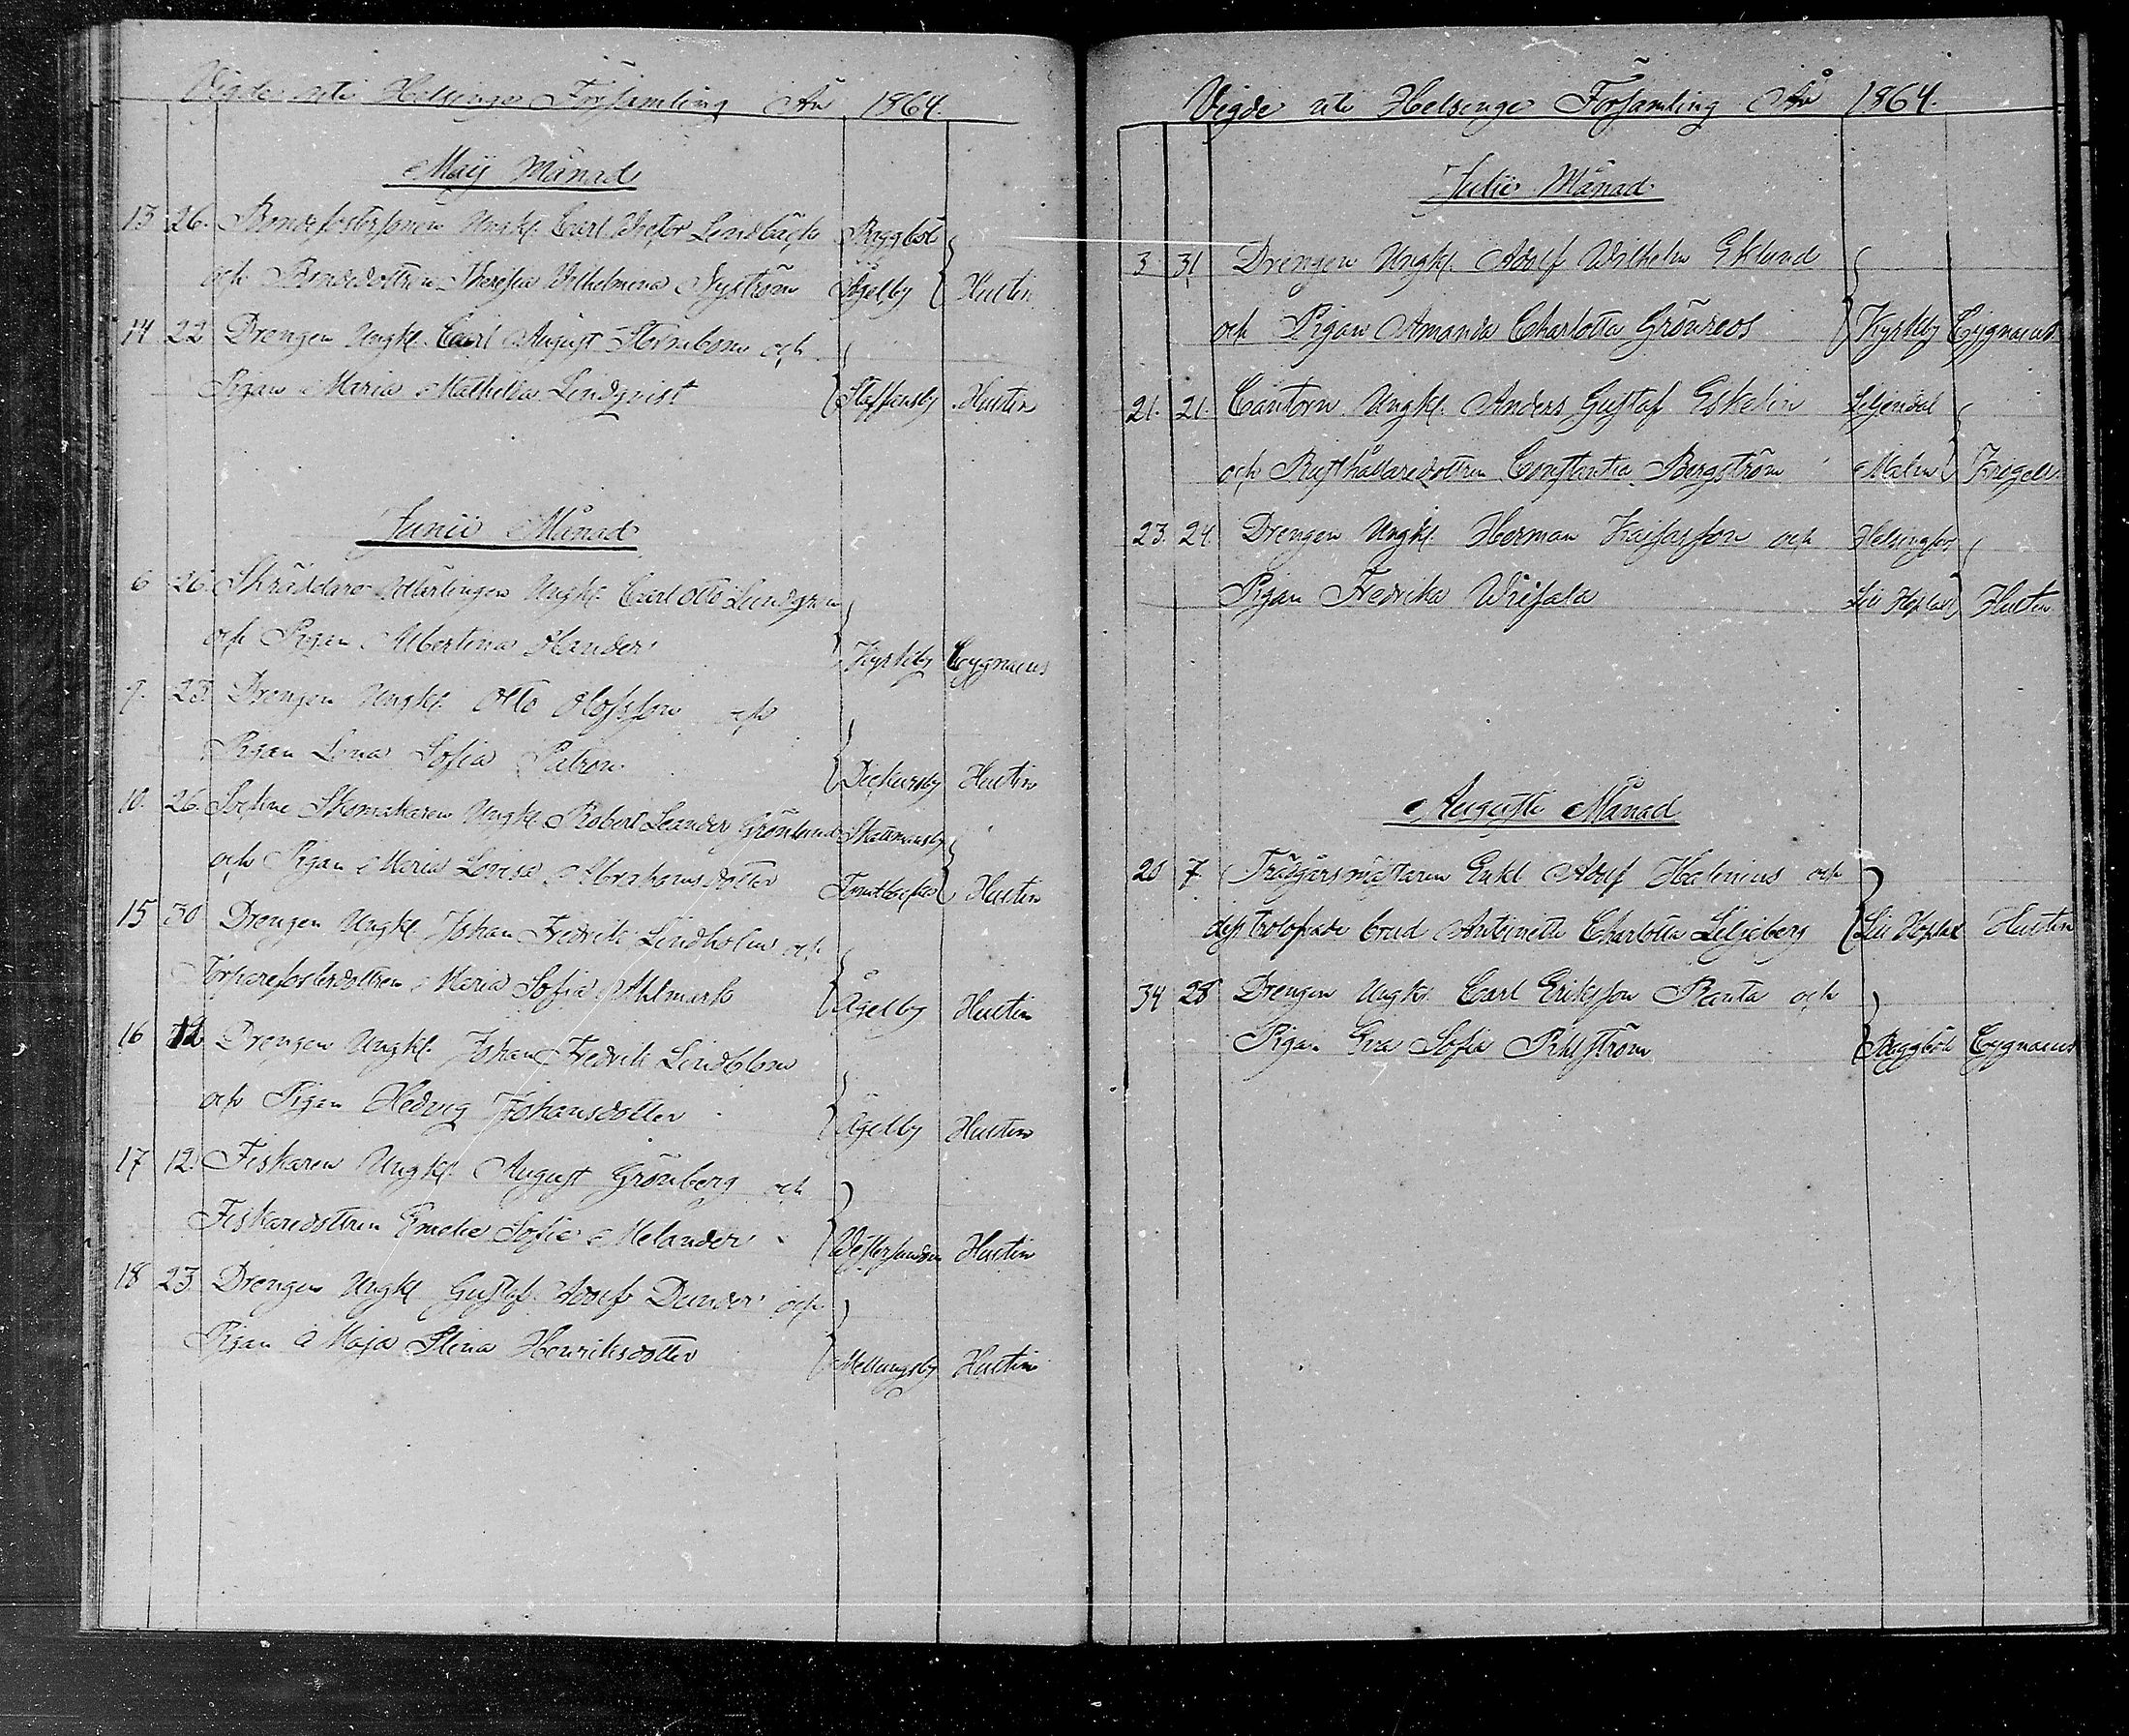 Vigde uti Helsinge Församling År 1864.
Maij Månad
13 26. Bondefostersonen Ungk. Carl Victor Lindbäck Baggböle
och Bondedottren Theresia Wilhelmina Nyström Ågelby Hustin
14 22 Drengen Ungk. Carl August Stormbom och
Pigan Maria Mathilda Lindqvist Staffansby Hustin
Junii Månad
6 26. Skräddare Lärlingen Ungk. Carl Otto Lundgren
och Pigan Albertina Kyrkby Cygnaeus
9. 23. Drengen Ungk. Otto Olofsson och
Pigan Lena Sofia Dickursby Hustin
10. 26. Sockne Skomakaren Ungk. Robert Leander Grönlund Skattmansby
och Pigan Maria Lovisa Abrahamsdotter Tomtbacka Hustin
15 30 Drengen Ungk. Johan Fredrik Lindholm och
Torparefosterdottren Maria Sofia Ahlmark Ågelby Hustin
16 12 Drengen Ungk. Johan Fredrik Lindblom
och Pigan Hedvig Johansdotter Ågelby Hustin
17 12. Fiskaren Ungk. August Grönberg och
Fiskaredottren Emelie Sofia Melander Westersundom Hustin
18 23 Drengen Ungk Gustaf Adolf Dunder och
Pigan Maja Stina Henriksdotter Mellungsby Hustin
Vigde uti Helsinge Församling År 1864.
Julii Månad
3 31 Drengen Ungk. Adolf Wilhelm Eklund
och Pigan Amanda Charlotta Grönroos Kyrkby Cygnaeus
21. 21. Cantorn Ungk. Anders Gustaf Eskelin Liljendal
och Rusthållaredottren Constantia Bergström Malm Krogell
23. 24. Drengen Ungk. Herman Kaisasson och Helsingfors
Pigan Fredrika Wrisala Lill Hoplax Hustin
Augusti Månad
20 7 Trädgårsmästaren Enkl Adolf Halenius och
dess trolofvade brud Antoinette Charlotta Liljeberg Lill Hoplax Hustin
34 28 Drengen Ungk. Carl Eriksson Ranta och
Pigan Eva Sofia Pihlström Baggböle Cygnaeus